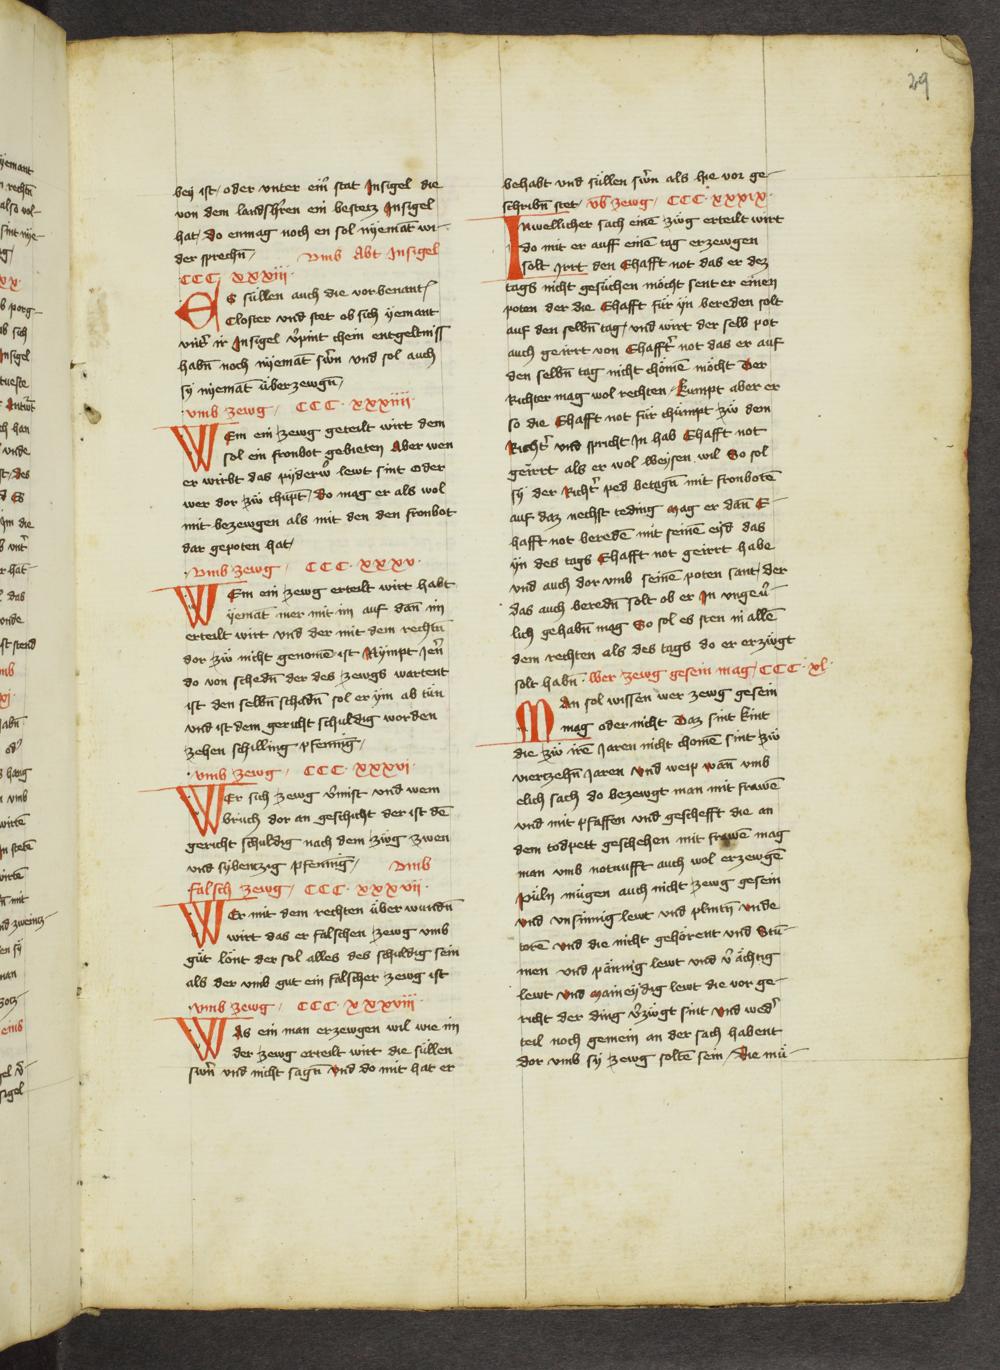 29
bey ist / oder vnter eim stat Insigel die
von dem landsh̄ren ein bestetz Insigel
hat / do enmag noch en sol nyemāt wi-
der sprechn̄ / vmb Abt Insigel
CCC xxxiii
ES süllen auch die vorbenant
Closter vnd stet ob sich yemant
vnt̄ ir Insigel v̄pint chein entgeltniss
habn̄ noch nyemāt sw̄n vnd sol auch
sy nyemāt überzewgn̄ /
vmb zewg / CCC · xxxiiii ·
WEm ein zewg geteilt wirt dem
sol ein fronbot gebieten Aber wen
er wirbt das pyderw̄ lewt sint oder
wer dor zw̄ chūpt / do mag er als wol
mit bezewgen als mit den den fronbot
dar gepoten hat /
vmb zewg / CCC · xxxv ·
WEm ein zewg erteilt wirt habt
yemāt mer mit im auf dān im
erteilt wirt vnd der mit dem rechtn̄
dor zw̄ nicht genomē ist Nympt Jen̄
do von schedn̄ der des zewgs wartent
ist den selbn̄ schadn̄ sol er ym ab tün
vnd ist dem gericht schuldig worden
zehen schilling pfenniḡ /
· vmb zewg / CCC · xxxvi ·
WEr sich zewg v̄mist vnd wem
bruch dor an geschicht der ist dē
gericht schuldig nach dem zẅg zwen
vnd sybentzig pfenniḡ / vmb
falsch zewg / CCC · xxxvii ·
WEr mit dem rechten über wundn̄
wirt das er falschen zewg vmb
güt lönt der sol alles des schuldig sein
als der vmb gut ein falscher zewg ist
· vmb zewg / CCC · xxxviii ·
WAs ein man erzewgen wil wie im
der zewg erteilt wirt die süllen
sw̄n vnd nicht sagn̄ vnd do mit hat er
behabt vnd süllen sw̄n als hie vor ge-
schribn̄ stet / vb zewg / CCC · xxxix ·
Inwellicher sach einē zẅg erteilt wirt
do mit er auff einē tag erzewgen
solt Irrt den Ehafft not das er dez
tags nicht gesüchen möcht sent er einen
poten der die Ehafft für yn bereden solt
auf den selbn̄ tag / vnd wirt der selb pot
auch geirrt von Ehafft̄ not das er auf
den selbn̄ tag nicht chömē möcht Der
Richter mag wol rechten / kumpt aber er
so die Ehafft not für chümpt zw̄ dem
Richt̄ vnd spricht In hab Ehafft not
geirrt als er wol weysen wil So sol
sy der Richt̄ ped betagn̄ mit fronbotē
auf daz nechst teding mag er dān E-
hafft not beredē mit seinē eyd das
yn des tags Ehafft not geirrt habe
vnd auch dor vmb seinē poten sant / der
das auch beredn̄ solt ob er In vngeu̇-
lich gehabn̄ mag So sol es sten in allē
dem rechten als des tags do er erzẅgt
solt habn̄ · Wer zewg gesein mag / CCC · xl ·
MAn sol wissen wer zewg gesein
mag oder nicht Daz sint kint
die zw̄ irē Jaren nicht chomē sint zw̄
viertzehn̄ Jaren vnd weip wān vmb
elich sach do bezewgt man mit frawē
vnd mit pfaffen vnd gescheft die an
dem todpett geschehen mit frawē mag
man vmb notnufft auch wol erzewgē
püln mügen auch nicht zewg gesein
vnd vnsinnig lewt vnd plintn̄ vnde
torē vnd die nicht gehörent vnd Stü-
men vnd pännig lewt vnd v̄ ächtig
lewt vnd maineydig lewt die vor ge-
richt der ding v̄zẅgt sint vnd wed̄
teil noch gemein an der sach habent
dor vmb sy zewg soltē sein / Die mü-